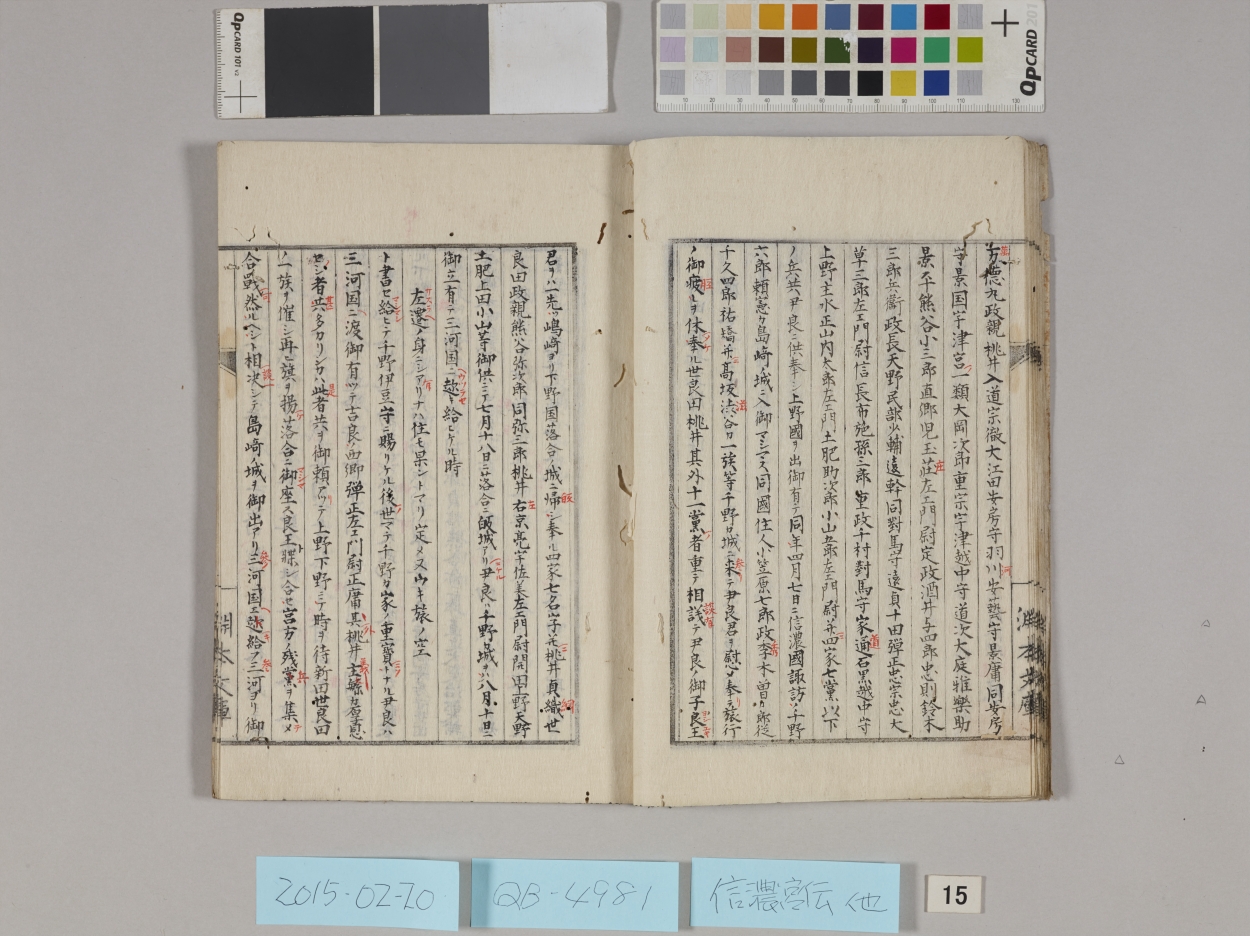 万徳丸政親桃井入道宗徹大江田安房守羽川安藝守景庸同安房
守景国宇津宮一類大岡次郎重宗宇津越中守道次大庭雅樂助
景平熊谷小三郎直郷児玉莊左エ門尉定政酒井与四郎忠則鈴木
三郎兵衛政長天野民部少輔遠幹同對馬守遠貞十田弾正忠宗忠大
草三郎左エ門尉信長布施孫三郎重政千村對馬守家通石黒越中守
上野主水正山内太郎左エ門土肥助次郎小山五郎左エ門尉并四家七黨以下
ノ兵共尹良ニ供奉シ上野國ヲ出御有テ同年四月七日ニ信濃國諏訪ノ千野
六郎頼憲カ島崎ノ城ニ入御マシマス同國住人小笠原七郎政季木曽ノ郎從
千久四郎祐矯并高坂渋谷ノ一族等千野ノ城ニ来テ尹良君ヲ慰メ奉ル旅行
ノ御疲レヲ休奉ル世良田桃井其外十一黨ノ者重テ相談テ尹良ノ御子良王
君ヲハ一先ツ嶋崎ヨリ下野国落合ノ城ニ帰シ奉ル四家七名字并桃井貞織世
良田政親熊谷弥次郎同弥三郎桃井右京亮宇佐美左エ門尉開田天野
土肥上田小山等御供シテ七月十八日ニ落合ニ皈城アリ尹良ハ千野ノ城ヲハ八月十日ニ
御立有テ三河国ニ趣キ給ヒケル時
左遷ノ身ニシアリナハ住モ果シトマリ定メヌウキ旅ノ空
ト書セ給ヒテ千野伊豆守ニ賜リケル後世マテ千野カ家ノ重寳トナル尹良ハ
三河国ニ渡御有ツテ吉良ノ西郷弾正左エ門尉正庸
セシ者共多カリシカハ此者共ヲ御頼アツテ上野下野ニテ時ヲ待新田世良田
ノ一族ヲ催シ再ヒ旗ヲ揚ケ落合ニ御座ス良王ト牒シ合セ宮方ノ残黨ヲ集メ
合戰然ルヘシト相决シテ島崎ノ城ヲ御出アリ三河国ニ趣給フ三河ヨリ御
淵本文庫
淵本文庫
2015-02-20
QB-4981
信濃宮伝 他
15
QPCARD 101 v3
QPCARD 201